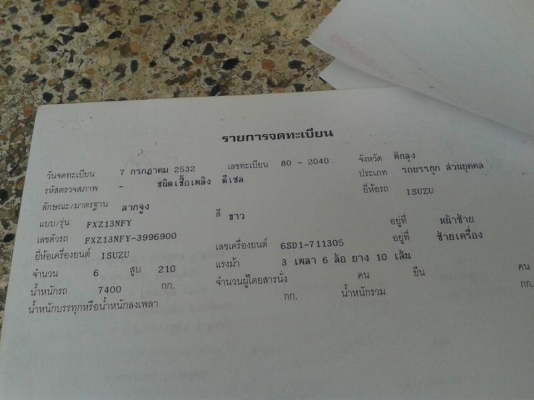 รายการจดทะเบียน
วันจดทะเบียน 7 กรกฎาคม 2532 เลขทะเบียน 80 - 2040 จังหวัด พัทลุง
รหัสตรวจสภาพ - ชนิดเชื้อเพลิง ดีเซล ประเภท รถบรรทุก ส่วนบุคคล
ลักษณะ/มาตรฐาน ลากจูง ยี่ห้อรถ ISUZU
แบบ/รุ่น FXZ13NFY สี ขาว
เลขตัวรถ FXZ13NFY-3996900 อยู่ที่ หน้าซ้าย
ยี่ห้อเครื่องยนต์ ISUZU เลขเครื่องยนต์ 6SD1-711305 อยู่ที่ ซ้ายเครื่อง
จำนวน 6 สูบ 210 แรงม้า 3 เพลา 6 ล้อ ยาง 10 เส้น
น้ำหนักรถ 7400 กก. จำนวนผู้โดยสารนั่ง คน ยืน คน
น้ำหนักบรรทุกหรือน้ำหนักลงเพลา กก. น้ำหนักรวม กก.